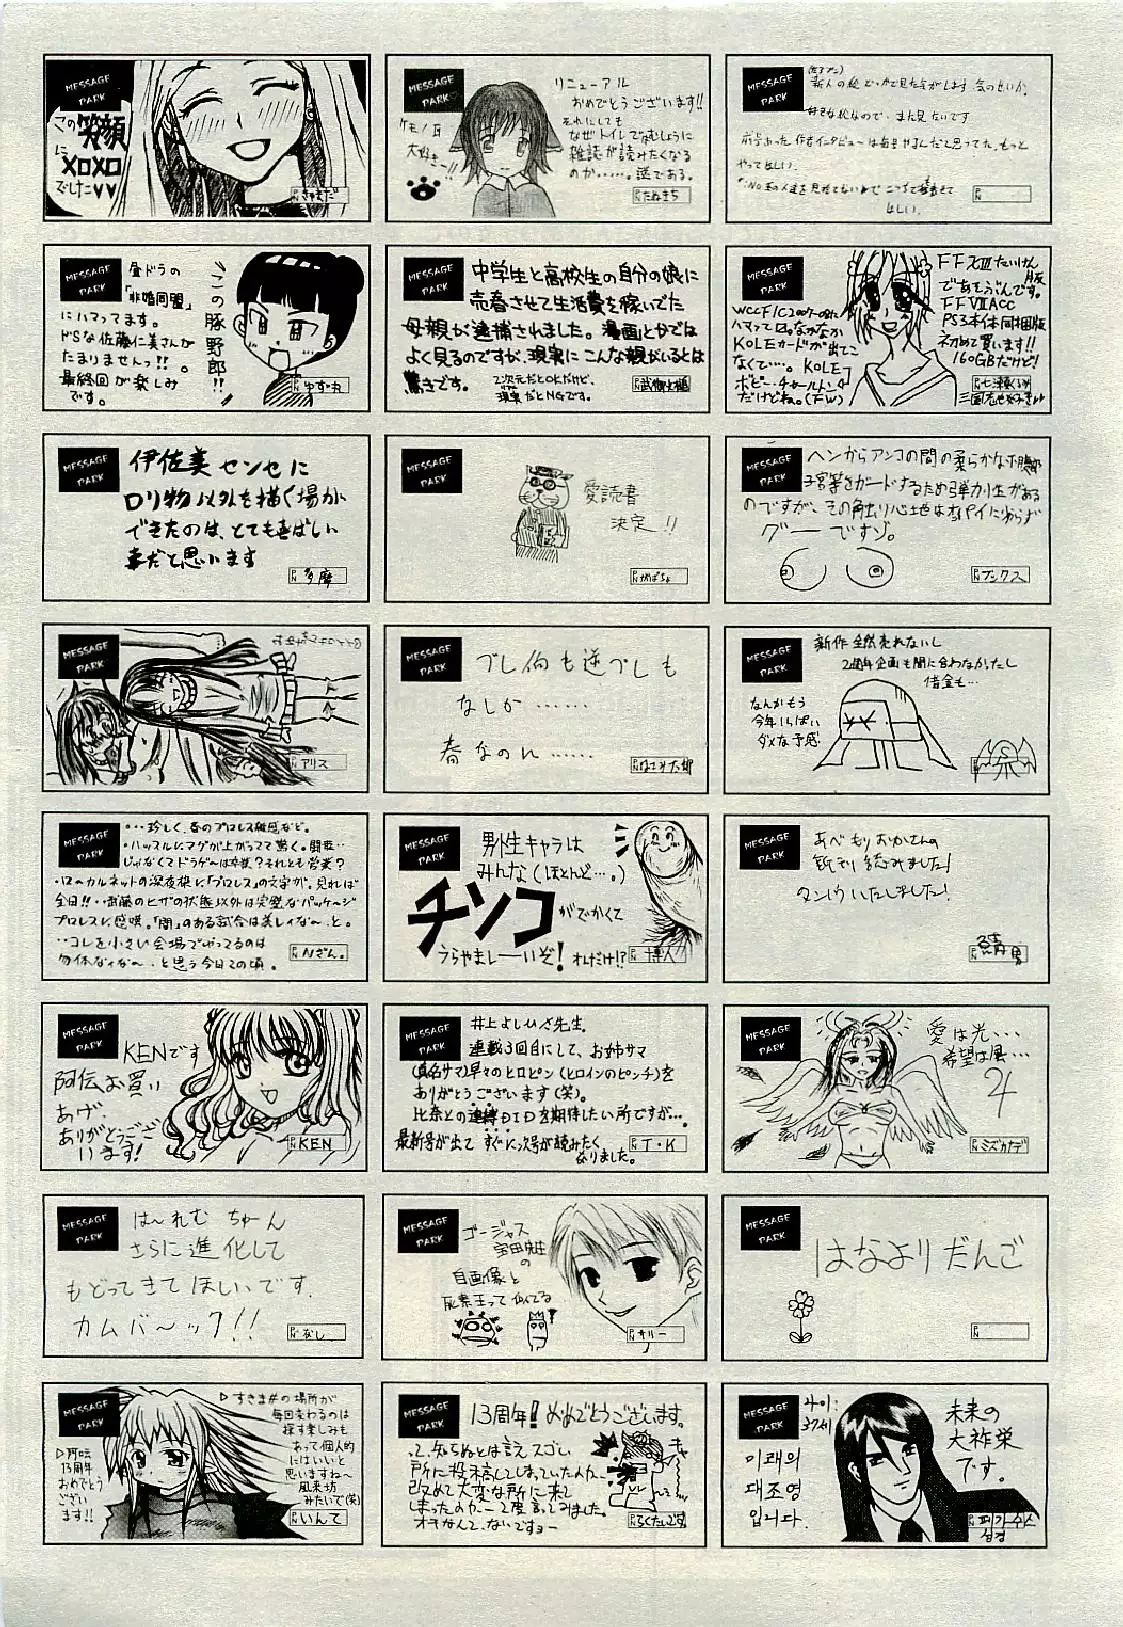 MESSAGE
PARK
この
笑顔
に
メロメロ
でけた♥♥
きゃまだ
MESSAGE
PARK
リニューアル
おめでとうございます!!
それにしても
なぜトイレでなむしょうに
雑誌が読みたくなる
のか……。謎である。
ケモノ耳
大好き〜!!
たぬきち
MESSAGE
PARK
好きな絵なので、また見たいです
やってほしい。
ほしい。
MESSAGE
PARK
昼ドラの
「非婚同盟」
にハマってます。
ドSな佐藤仁美さんが
たまりませんっ!!。
最終回が楽しみ
です。
この豚野郎!!
ゆず丸
MESSAGE
PARK
中学生と高校生の自分の娘に
売春させて生活費を稼いでた
母親が逮捕されました。漫画とかでは
よく見るのですが、現実にこんな親がいるとは
驚きです。
2次元だとOKだけど、
現実だとNGです。
MESSAGE
PARK
FFⅩⅢたいけん版
であそぶんです。
FFⅦACC
PS3本体同梱版
初めて買います!!
160GBだけど!
WCCF IC2007-08に
ハマって回。なかなか
KOLEカードが出てこ
なくて…。KOLE
ボビー・チャールトン
だけどね。(FW)
MESSAGE
PARK
伊佐美センセに
ロリ物以外を描く場が
できたのは、とても喜ばしい
事だと思います
多摩
MESSAGE
PARK
愛読書
決定!!
MESSAGE
PARK
ヘンからアンコの間の柔らかな下腹部
子宮等をガードするため弾力性がある
のですが、その触り心地はオッパイに劣らず
グーですゾ。
ブックス
MESSAGE
PARK
アリス
MESSAGE
PARK
ブレ何も逆ブレも
なしか……
春なのに……
MESSAGE
PARK
新作全然売れないし
2周年企画も間に合わなかったし
借金も…
なんかもう
今年いっぱい
ダメな予感
MESSAGE
PARK
・…珍しく、春のプロレス雑感など。
・ハッスルにマグが上がってて驚く。闘龍…
じゃなくてドラゲーは卒業?それとも営業?
・ローカルネットの深夜枠に「プロレス」の文字が。見れば
全日!!…武藤のヒザの状態以外は完璧なパッケージ
プロレスに感嘆。「間」のある試合は美しいな〜、と。
…コレを小さい会場でやってるのは
勿体ないな〜、と思う今日この頃。
Nざん。
MESSAGE
PARK
男性キャラは
みんな(ほとんど…。)
チンコがでかくて
うらやまし――いぞ! オレだけ!?
博人
MESSAGE
PARK
あべもりおかさんの
MESSAGE
PARK
KENです
阿伝お買い
あげ、
ありがとうござ
います!
KEN
MESSAGE
PARK
井上よしひさ先生、
連載3回目にして、お姉サマ
(真名サマ)早々のヒロピン(ヒロインのピンチ)を
ありがとうございます(笑)。
比奈との連縛DIDを期待したい所ですが…
最新号が出て すぐに次号が読みたく
なりました。
T・K
MESSAGE
PARK
愛は光…
希望は風…
ミズカナデ
MESSAGE
PARK
は〜れむ ちゃーん
さらに進化して
もどってきてほしいです。
カムバ〜ック!!
なし
MESSAGE
PARK
ゴージャス
宝田先生
の
自画像と
尿素王って似てる
サリー
MESSAGE
PARK
はなよりだんご
MESSAGE
PARK
▷すきま#の場所が
毎回変わるのは
探す楽しみも
あって個人的
にはいいと
思いますね〜
風来坊
みたいで(笑)
▷阿吽
13周年
おめでとう
ござい
ます!!
いんて
MESSAGE
PARK
13周年!おめでとうございます。
…と、知らぬとは言え、スゴい
所に投稿してしまっていたのかと
改めて大変な所に来て
しまったのか…って度言ってみました。
らくたいです
MESSAGE
PARK
4이:
37세
미래의
대조영
입니다.
未来の
大祚栄
です。
페가수스
성경